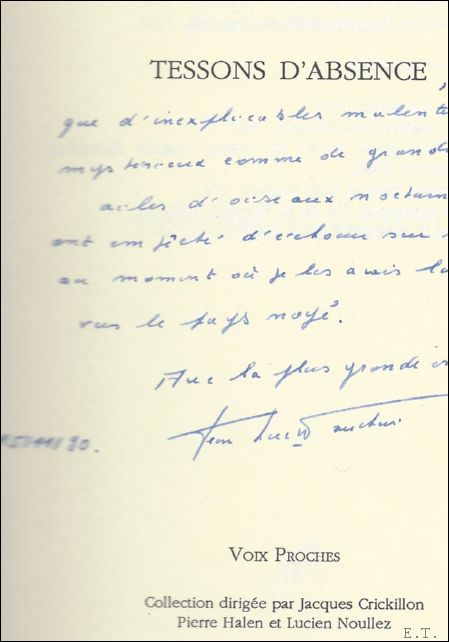 TESSONS D'ABSENCE
que d'inexplicables malente
mystérieux comme de grande
ailes d'oiseaux nocturn
ont empêché d'échouer sur
au moment où je les avais la
vers le pays noyé.
Avec la plus grande
Jean Luc Wauthier
80.
VOIX PROCHES
Collection dirigée par Jacques Crickillon
Pierre Halen et Lucien Noullez
E.T.